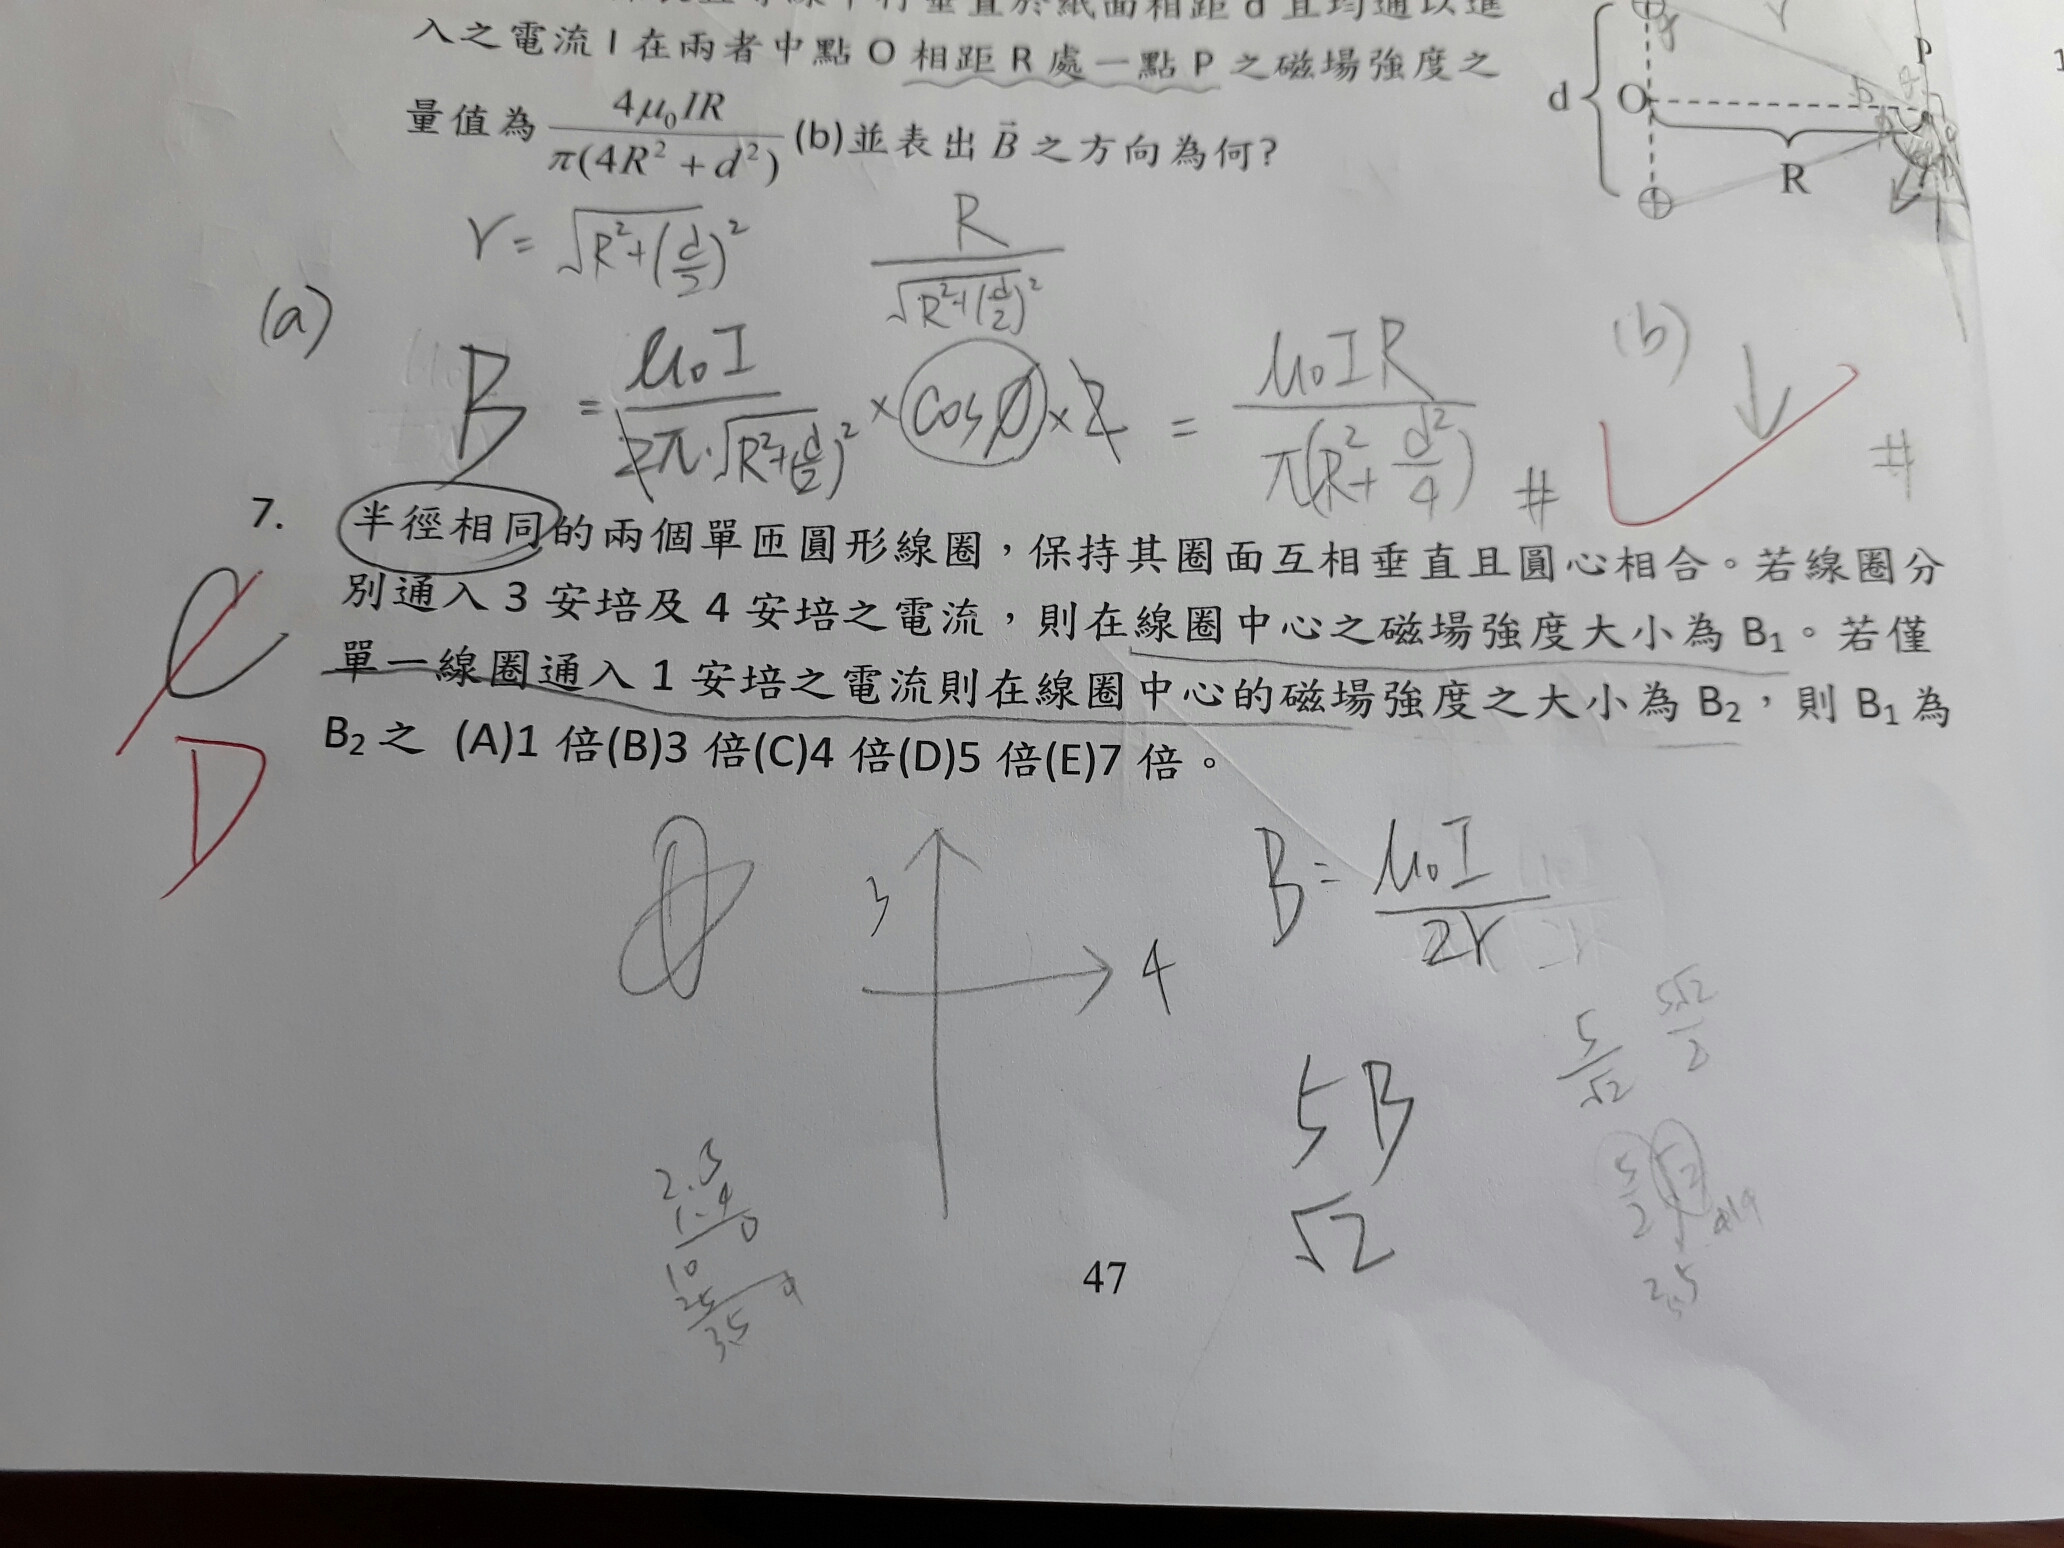 入之電流 I 在兩者中點 O 相距 R 處一點 P 之磁場強度之
量值為 4μ₀IR / π(4R² + d²) (b)並表出 B⃗ 之方向為何?
d O R P
r = √R²+(d/2)²
R / √R²+(d/2)²
(a)
B = μ₀I / 2π·√R²+(d/2)² × cosφ × 2 = μ₀IR / π(R²+d²/4) #
(b) ↓ #
7. 半徑相同的兩個單匝圓形線圈，保持其圈面互相垂直且圓心相合。若線圈分
別通入 3 安培及 4 安培之電流，則在線圈中心之磁場強度大小為 B₁。若僅
單一線圈通入 1 安培之電流則在線圈中心的磁場強度之大小為 B₂，則 B₁ 為
B₂ 之 (A)1 倍(B)3 倍(C)4 倍(D)5 倍(E)7 倍。
C
D
3
4
B = μ₀I / 2r
5/√2
5√2/2
5B
√2
47